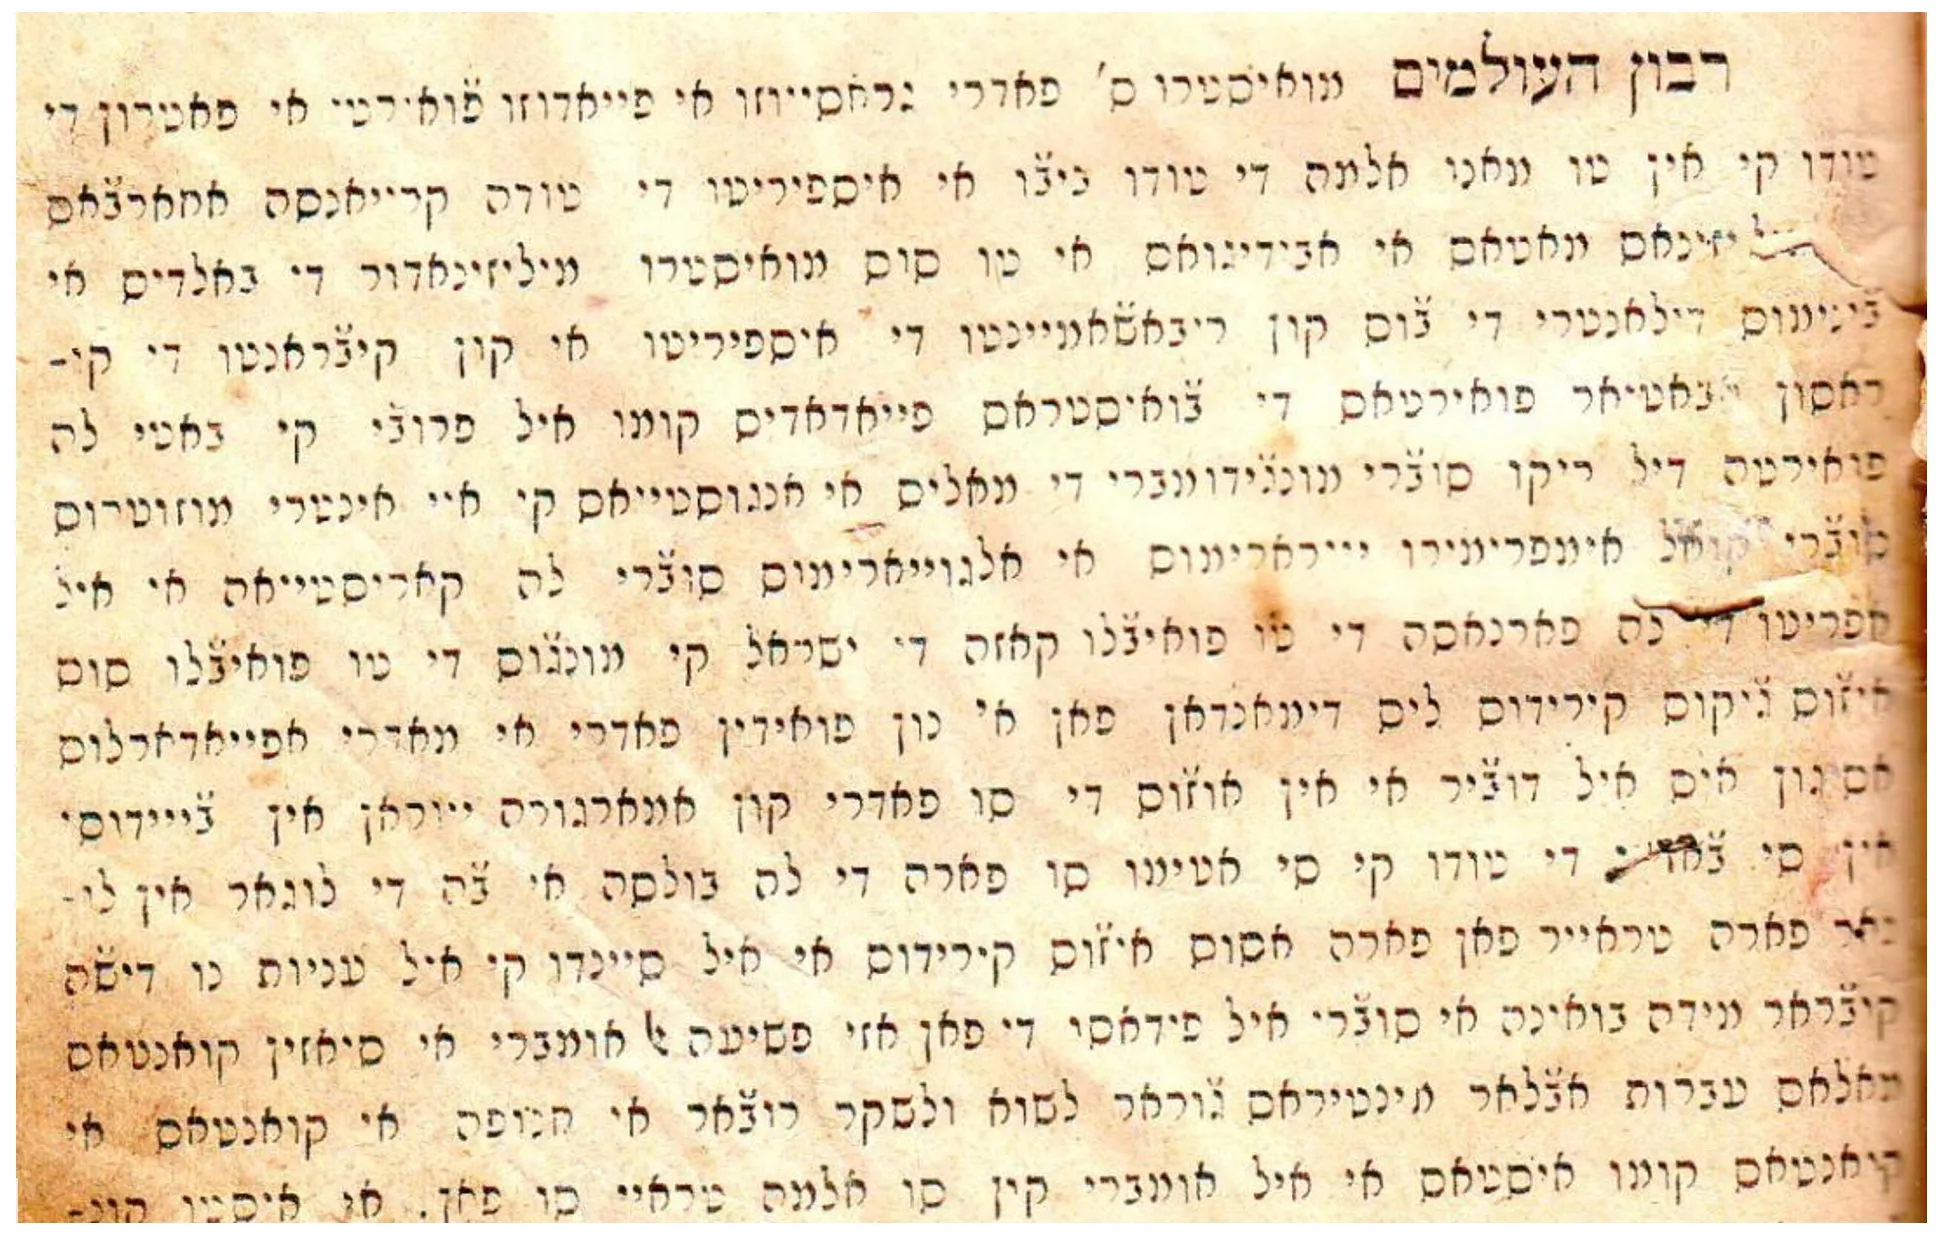 רבון העולמים מואיסטרו ס' פאדרי גראסייוזו אי פייאדוזו פ̈ואירטי אי פאטרון די
טודו קי אין טו מאנו אלמה די טודו ביב̈ו אי איספיריטו די טודה קרייאנסה אחארב̈אס
מאטאס אי אבידיגואס אי טו סוס מואיסטרו מיליזינאדור די באלדיס אי
ב̈ינימוס דילאנטרי די ב̈וס קון ריבאש̈אמיינטו די איספיריטו אי קון קיב̈ראנטו די קו-
ראסון אבאטיאר פואירטאס די ב̈ואיסטראס פייאדאדיס קומו איל פרוב̈י קי באטי לה
פואירטה דיל ריקו סוב̈רי מונג̈ידומברי די מאליס אי אנגוסטייאס קי איי אינטרי מוזוטרוס
סוב̈רי קואל אימפרימירו יירארימוס אי אלגוייארימוס סוב̈רי לה קאריסטייאה אי איל
אפריטו די לה פארנאסה די טו פואיב̈לו קאזה די ישראל קי מונג̈וס די טו פואיב̈לו סוס
איז̈וס ג̈יקוס קירידוס ליס דימאנדאן פאן אי נון פואידין פאדרי אי מאדרי אפייאדארלוס
אסיגון איס איל דוב̈יר אי אין אוז̈וס די סו פאדרי קון אמארגורה ייוראן אין ב̈יידוסי
אין סי די טודו קי סי אטימו סו פארה די לה בולסה אי ב̈ה די לוגאר אין לו-
גאר פארה טראייר פאן פארה אסוס איז̈וס קירידוס אי איל סיינדו קי איל עניות נו דיש̈ה
קיב̈ראר מידה בואינה אי סוב̈רי איל פידאסו די פאן אזי פשיעה ﭏ אומברי אי סיאזין קואנטאס
מאלאס עברות אב̈לאר מינטיראס ג̈וראר לשוא ולשקר רוב̈אר אי חנופה אי קואנטאס אי
קואנטאס קומו איסטאס אי איל אומברי קון סו אלמה טראיי סו פאן. אי איסטו קונ-